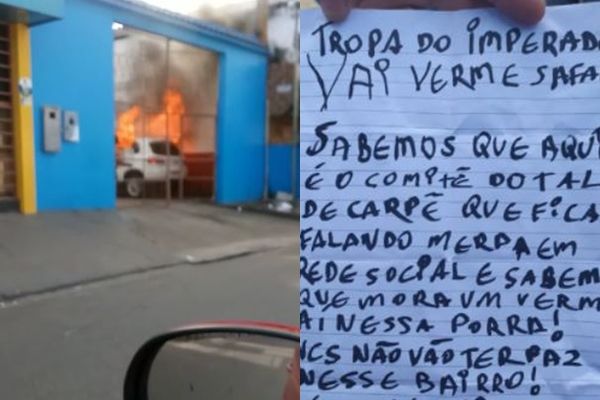 TROPA DO IMPERADO
VAI VERME SAFA
SABEMOS QUE AQUI
É O COMITÊ DO TAL
DE CARPÊ QUE FICA
FALANDO MERDA EM
REDE SOCIAL E SABEM
QUE MORA UM VERM
AI NESSA PORRA!
VCS NÃO VÃO TER PAZ
NESSE BAIRRO!